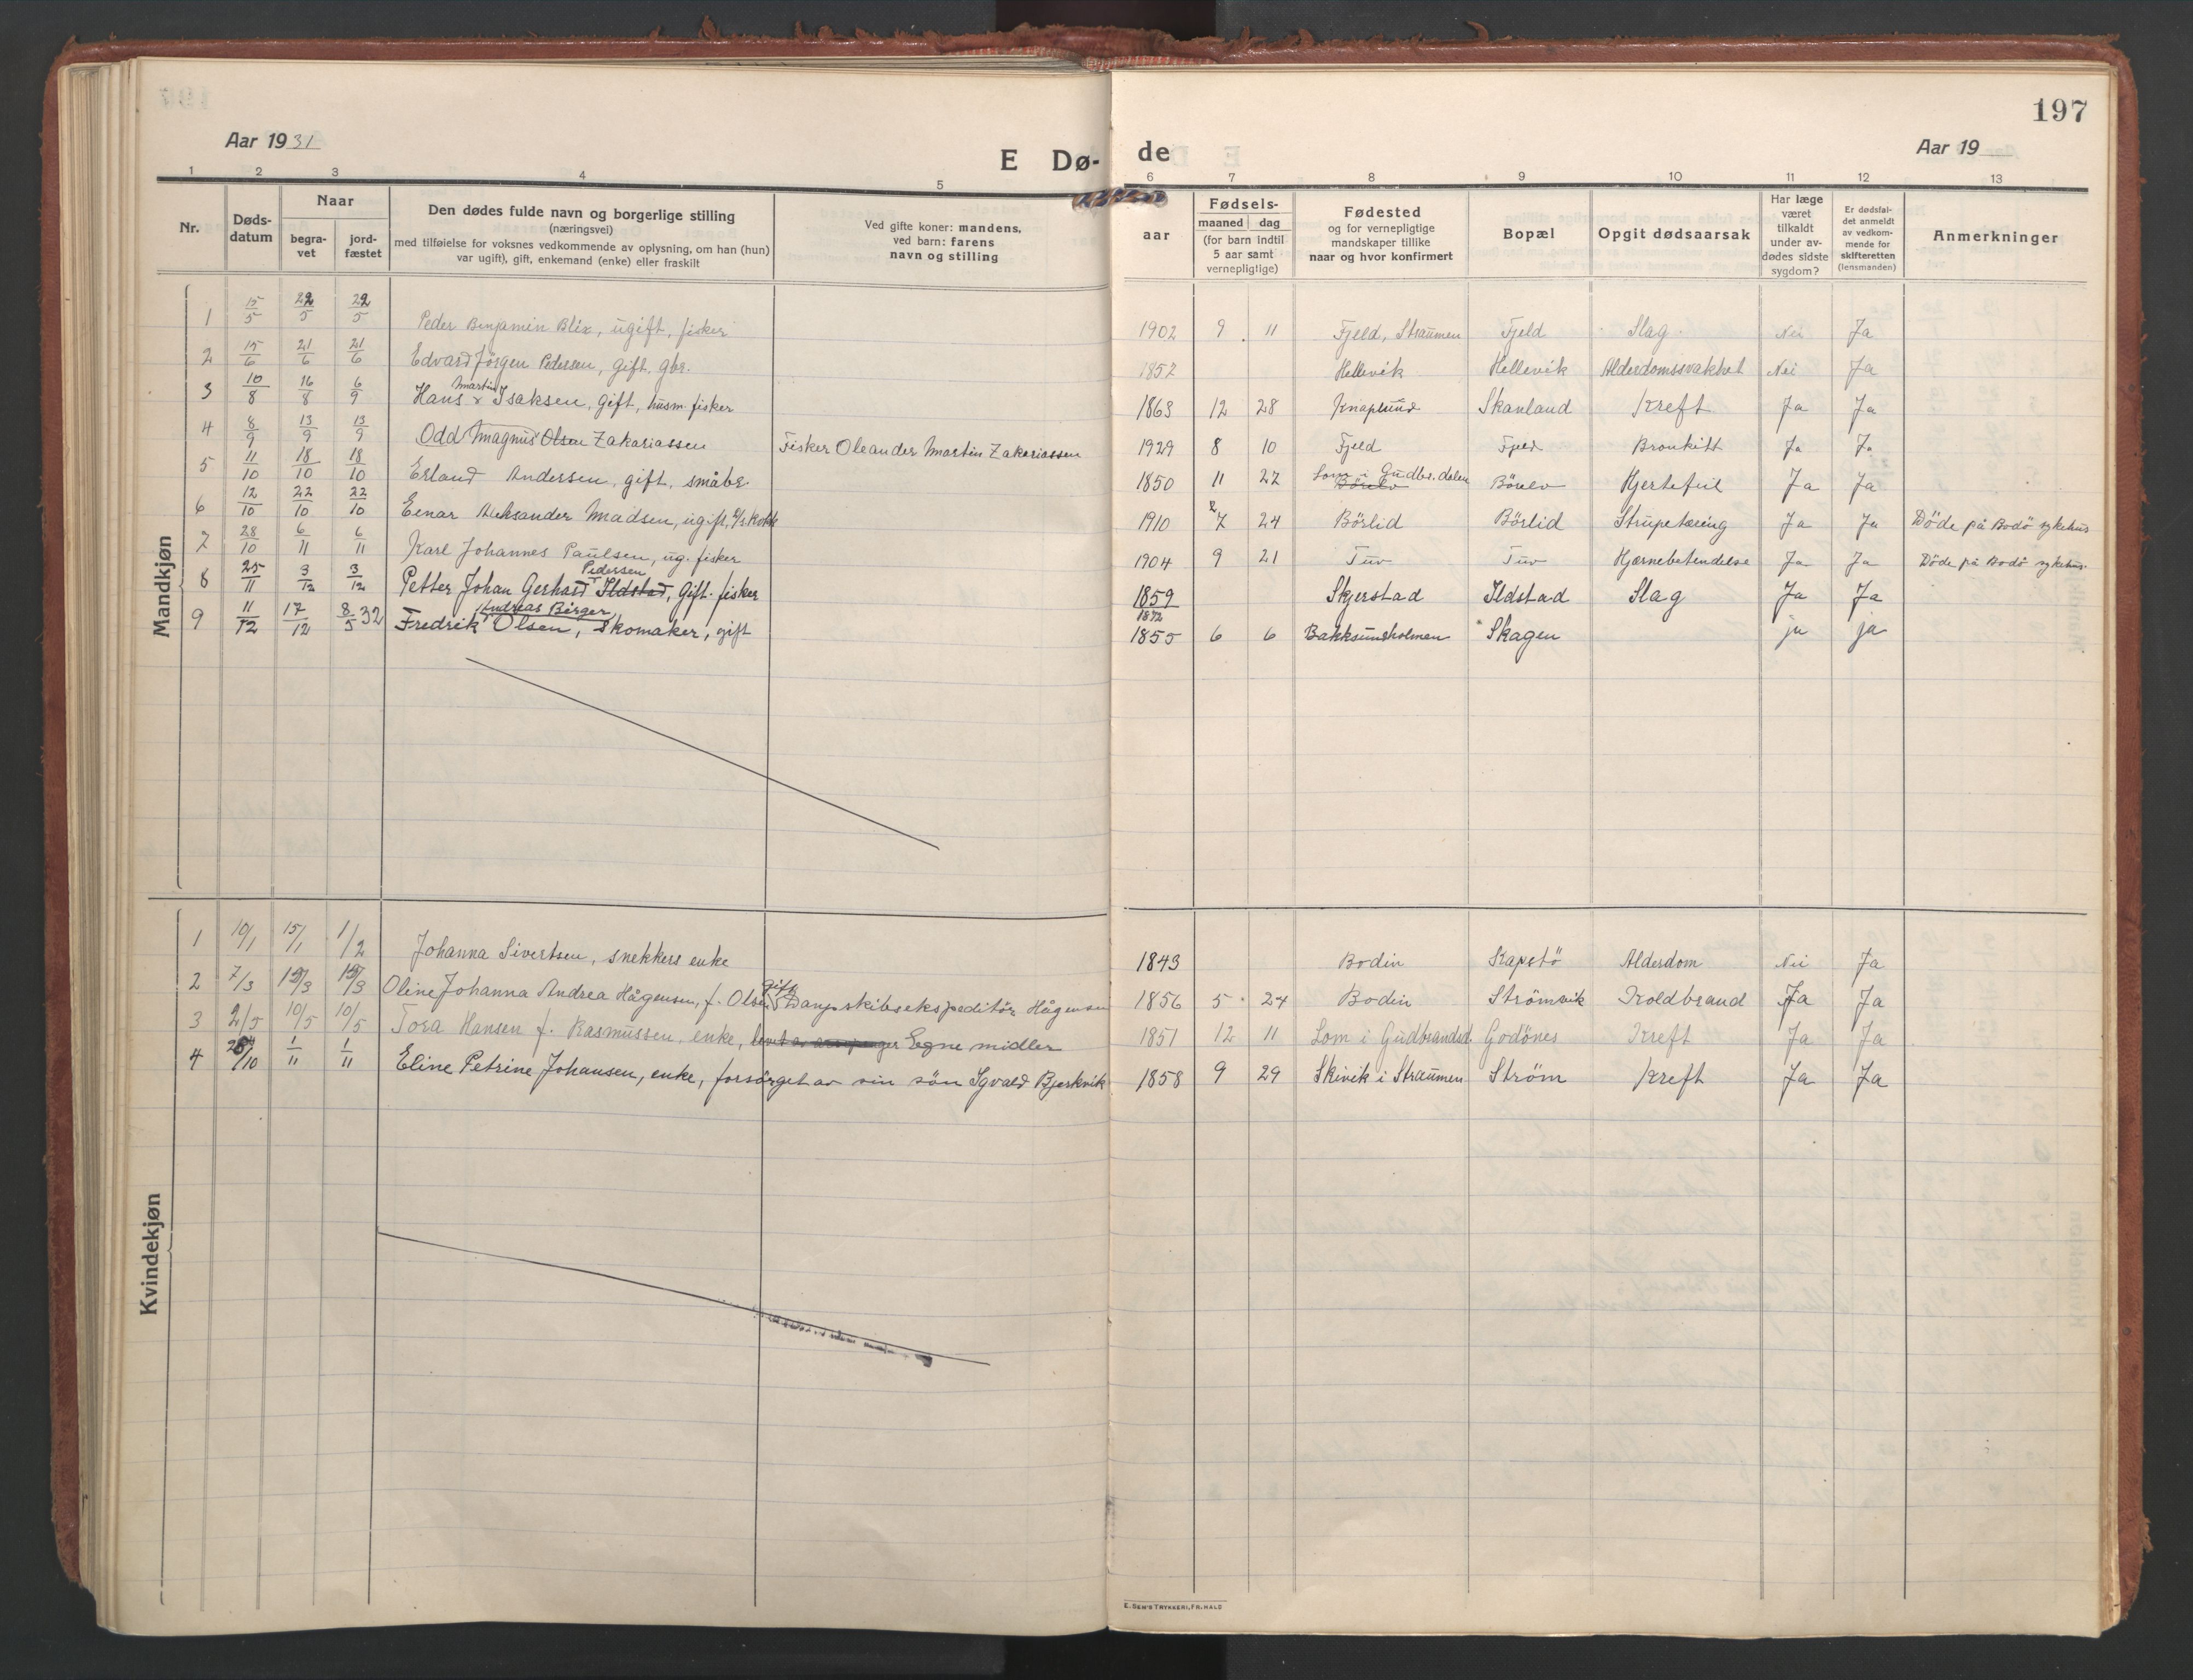 197
Aar 1931
E Dø-
de
Aar 19
1 2 3 4 5 6 7 8 9 10 11 12 13
Nr.
Døds-
datum
Naar
begra-
vet
jord-
fæstet
Den dødes fulde navn og borgerlige stilling
(næringsvei)
med tilføielse for voksnes vedkommende av oplysning, om han (hun)
var ugift), gift, enkemand (enke) eller fraskilt
Ved gifte koner: mandens,
ved barn: farens
navn og stilling
aar
Fødsels-
maaned dag
(for barn indtil
5 aar samt
vernepligtige)
Fødested
og for vernepligtige
mandskaper tillike
naar og hvor konfirmert
Bopæl
Opgit dødsaarsak
Har læge
været
tilkaldt
under av-
dødes sidste
sygdom?
Er dødsfal-
det anmeldt
av vedkom-
mende for
skifteretten
(lensmanden)
Anmerkninger
Mandkjøn
1 15/5 22/5 22/5 Peder Benjamin Blix, ugift, fisker 1902 9 11 Fjeld, Straumen Fjeld Slag Nei Ja
2 15/6 21/6 21/6 Edvard Jørgen Pedersen, gift, gbr. 1852 Hellevik Hellevik Alderdomssvakhet Nei Ja
3 10/8 16/8 6/9 Hans Martin Isaksen, gift, husm. fisker 1863 12 28 Knaplund Skanland Kreft Ja Ja
4 8/9 13/9 13/9 Odd Magnus Olsen Zakariassen Fisker Oleander Martin Zakariassen 1929 8 10 Fjeld Fjeld Bronkitt Ja Ja
5 11/10 18/10 18/10 Erland Andersen, gift, småbr. 1850 11 27 Lom i Gudbr.dalen Børelv Børelv Hjertefeil Ja Ja
6 12/10 22/10 22/10 Einar Aleksander Madsen, ugift, kokk 1910 7 24 Börlid Börlid Strupetæring Ja Ja Döde på Bodö sykehus
7 28/10 6/11 6/11 Karl Johannes Paulsen, ug. fisker 1904 9 21 Tuv Tuv Hjernebetendelse Ja Ja Döde på Bodö sykehus.
8 25/11 3/12 3/12 Petter Johan Gerhard Pedersen Ildstad, Gift. fisker 1859 Skjerstad Ildstad Slag Ja Ja
9 11/12 17/12 8/5 32 Fredrik Andreas Birger Olsen, Skomaker, gift 1872 1855 6 6 Bakksundholmen Skagen ja ja
Kvindekjøn
1 10/1 15/1 1/2 Johanna Sivertsen, snekkers enke 1843 Bodin Kapstö Alderdom Nei Ja
2 7/3 15/3 15/3 Oline Johanna Andrea Hågensen, f. Olsen, gift Dampskibsekspeditör Hågensen 1856 5 24 Bodin Strömvik Koldbrand Ja Ja
3 2/5 10/5 10/5 Tora Hansen f. Rasmussen, enke, Egne midler 1851 12 11 Lom i Gudbrandsd. Godönes Kreft Ja Ja
4 /10 1/11 1/11 Eline Petrine Johansen, enke, forsörget av sin sön Sgvald Bjerkvik 1858 9 29 Skivik i Straumen Ström Kreft Ja Ja
E. SEM'S TRYKKERI, FR. HALD